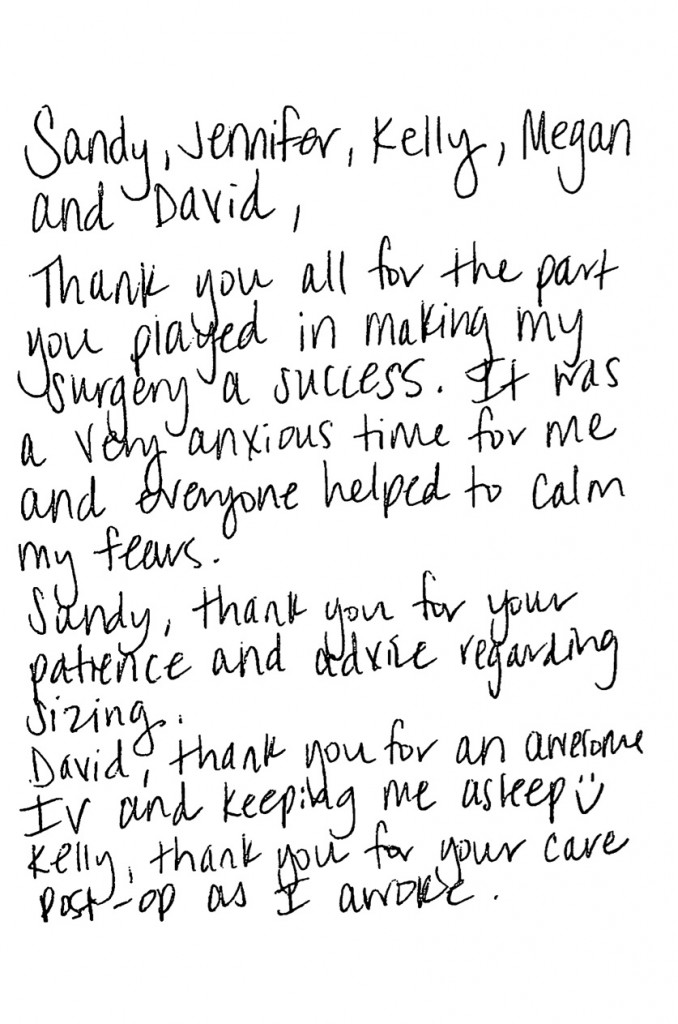 Sandy, Jennifer, Kelly, Megan
and David,
Thank you all for the part
you played in making my
surgery a success. It was
a very anxious time for me
and everyone helped to calm
my fears.
Sandy, thank you for your
patience and advice regarding
sizing.
David, thank you for an awesome
IV and keeping me asleep ☺
Kelly, thank you for your care
post-op as I awoke.